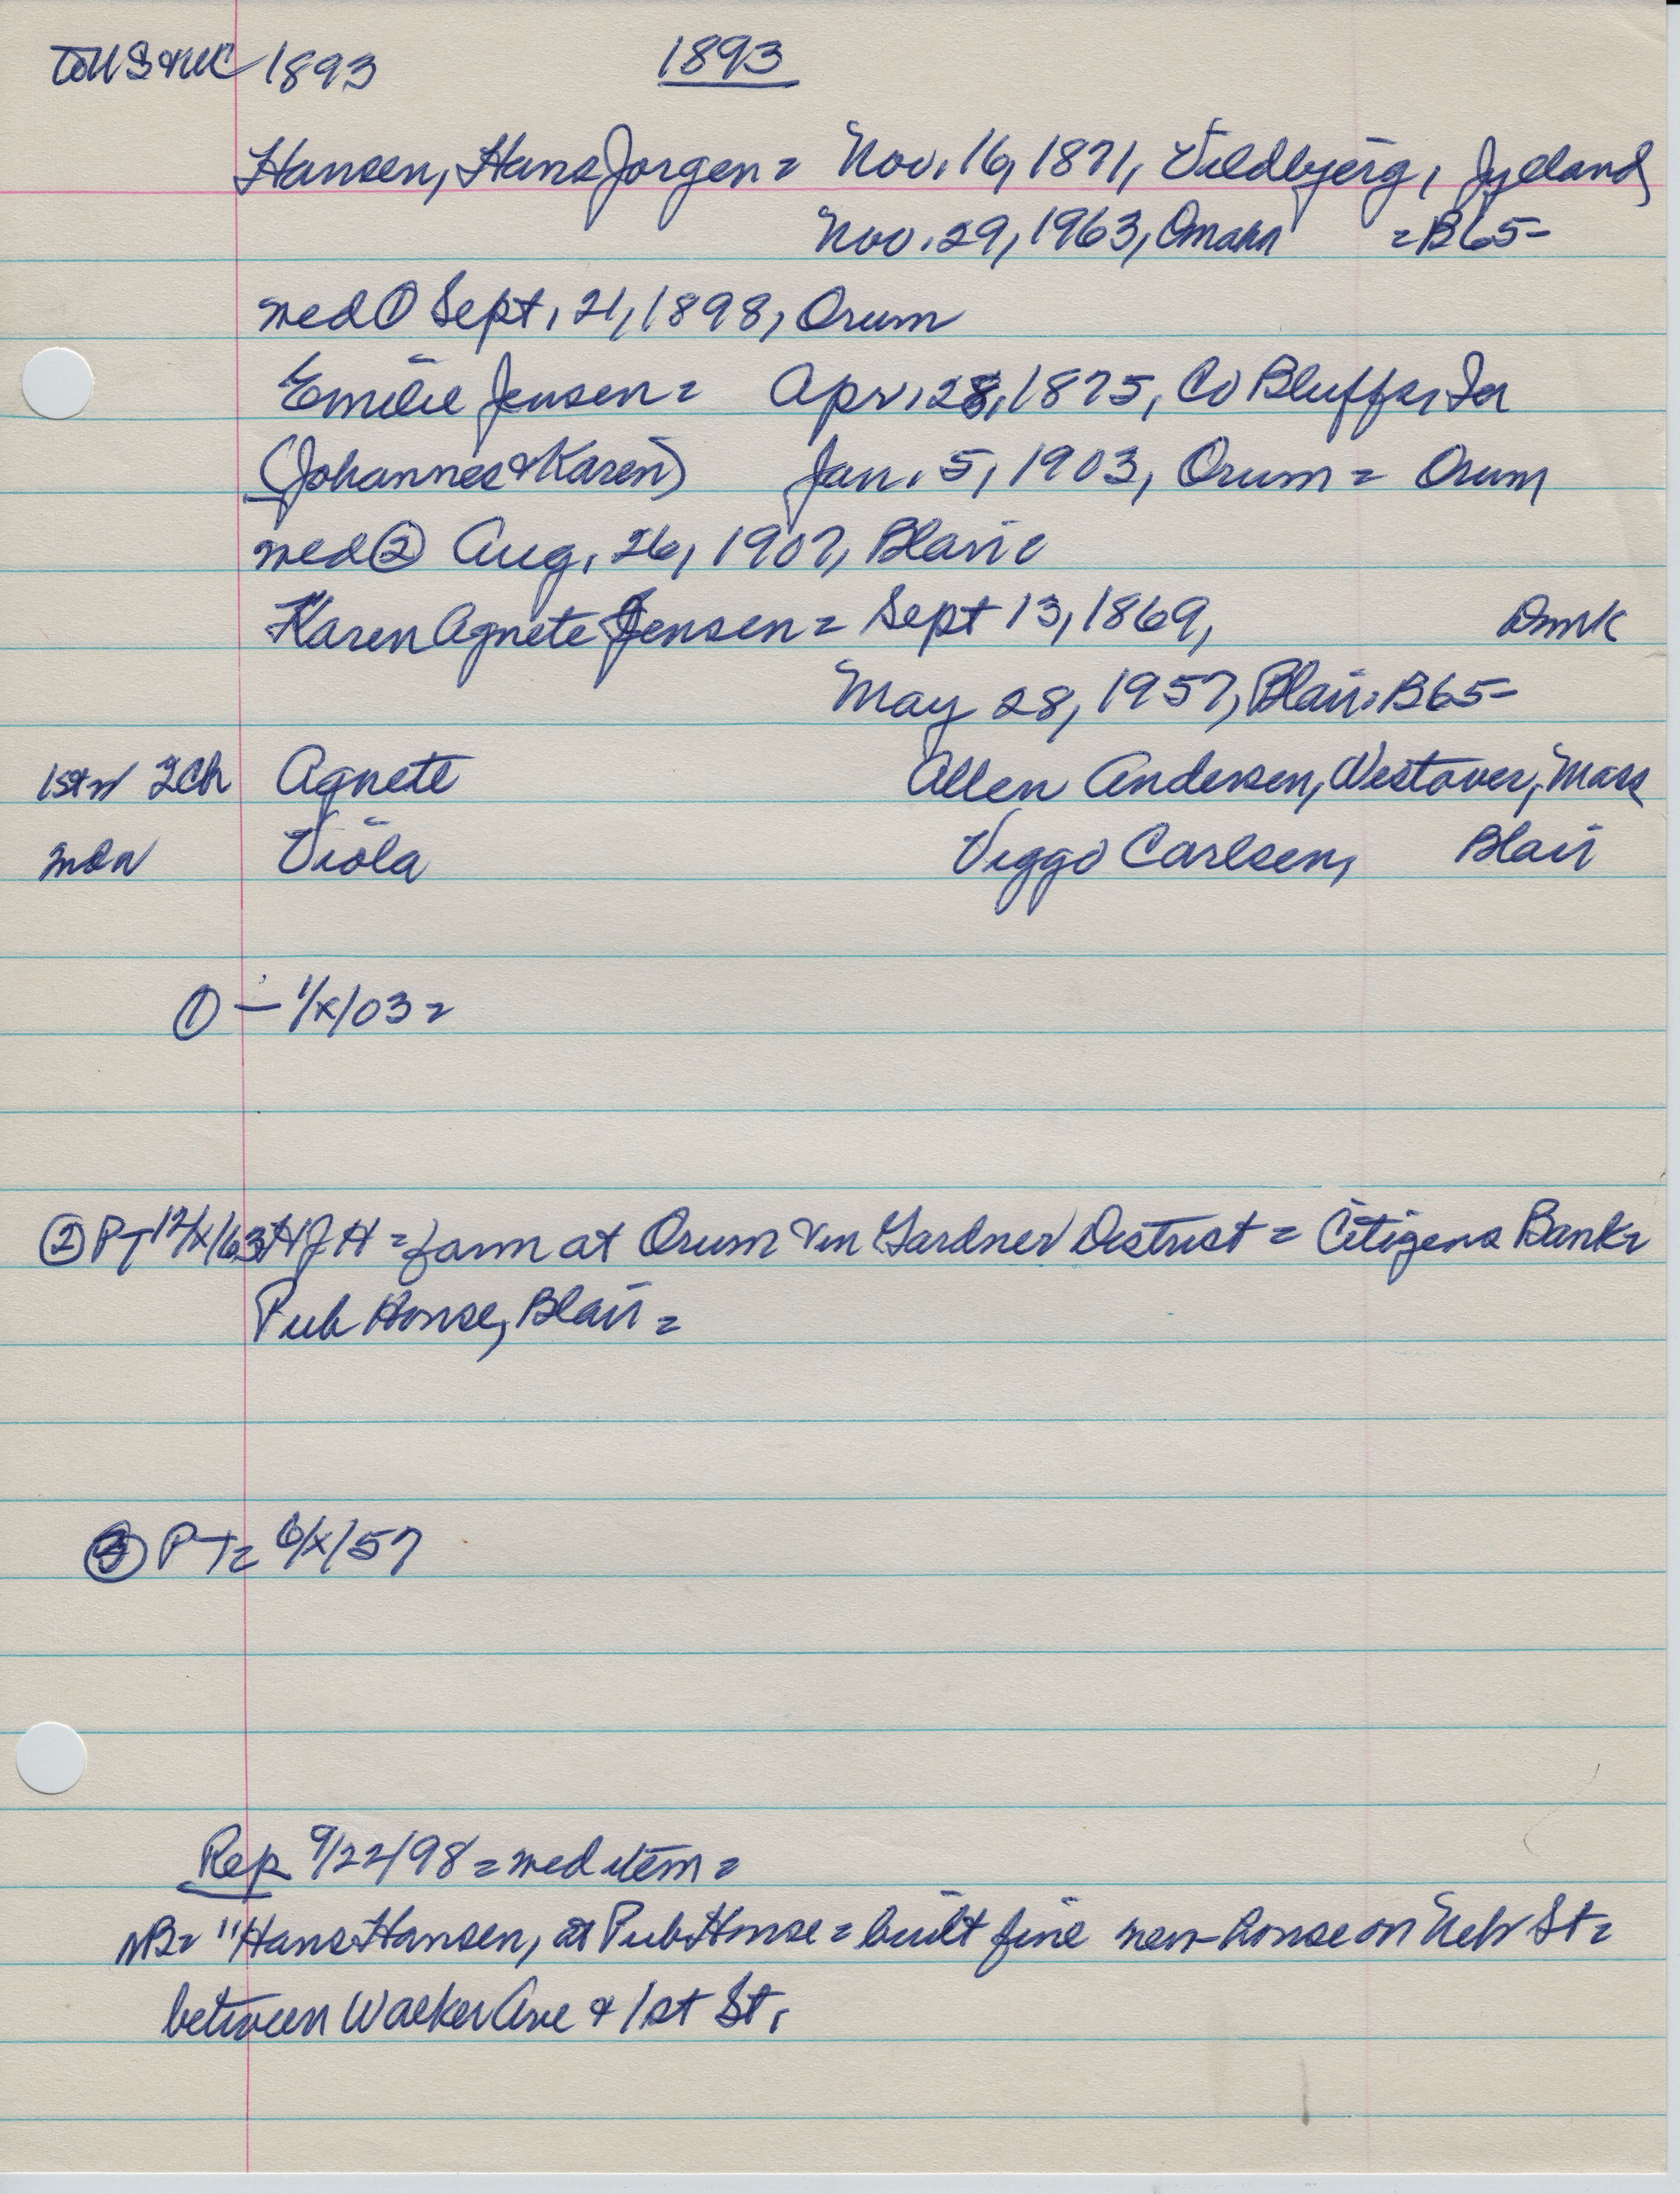 1893 1893
Hansen, Hans Jorgen = Nov. 16, 1871, Vildbjerg, Jylland
Nov. 29, 1963, Omaha = B65-
wed ① Sept. 21, 1898, Orum
Emilie Jensen = Apr. 28, 1875, Co Bluffs, Ia
(Johannes & Karen) Jan. 5, 1903, Orum = Orum
wed ② Aug. 26, 1907, Blair
Karen Agnete Jensen = Sept 13, 1869, Dmrk
May 28, 1957, Blair. B65-
1st w 2 ch Agnete Allen Andersen, Westover, Mass
Viola Viggo Carlsen, Blair
① — 1/x/03 =
② PT 12/x/63 HJH = farm at Orum & in Gardner District = Citizens Bank =
Pub House, Blair =
③ PT = 6/x/57
Rep 9/22/98 = wed item =
NB = "Hans Hansen, at Pub House = built fine new house on Nebr St =
between Walker Ave & 1st St.